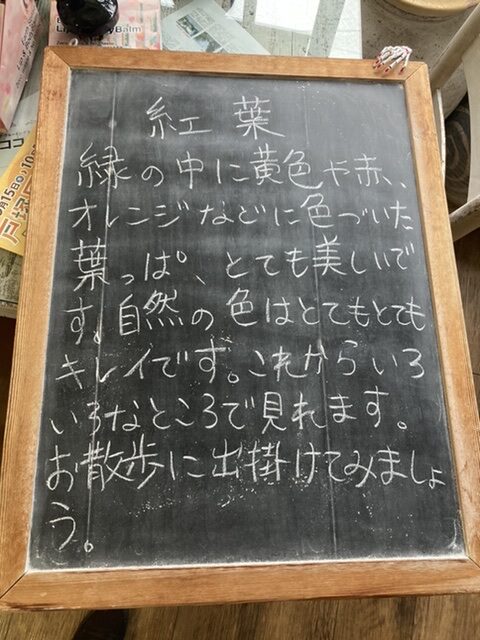 紅葉
緑の中に黄色や赤、
オレンジなどに色づいた
葉っぱ、とても美しいで
す。自然の色はとてもとても
キレイです。これからいろ
いろなところで見れます。
お散歩に出掛けてみましょ
う。